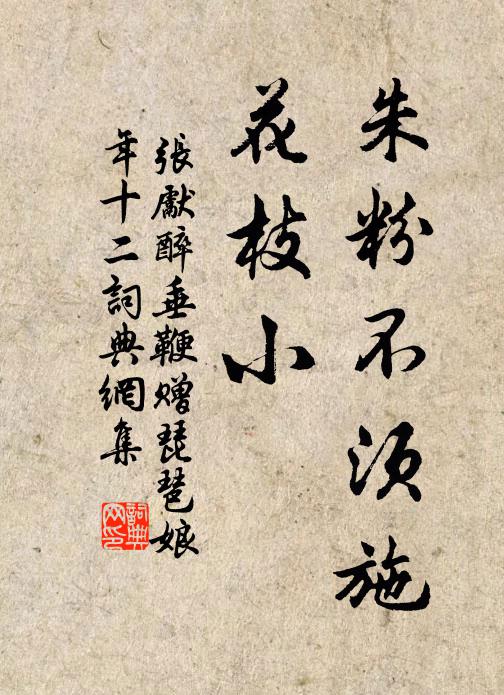 朱粉不须施
花枝小
張獻醉垂鞭贈琵琶娘
年十二詞典網集
詞典
网印